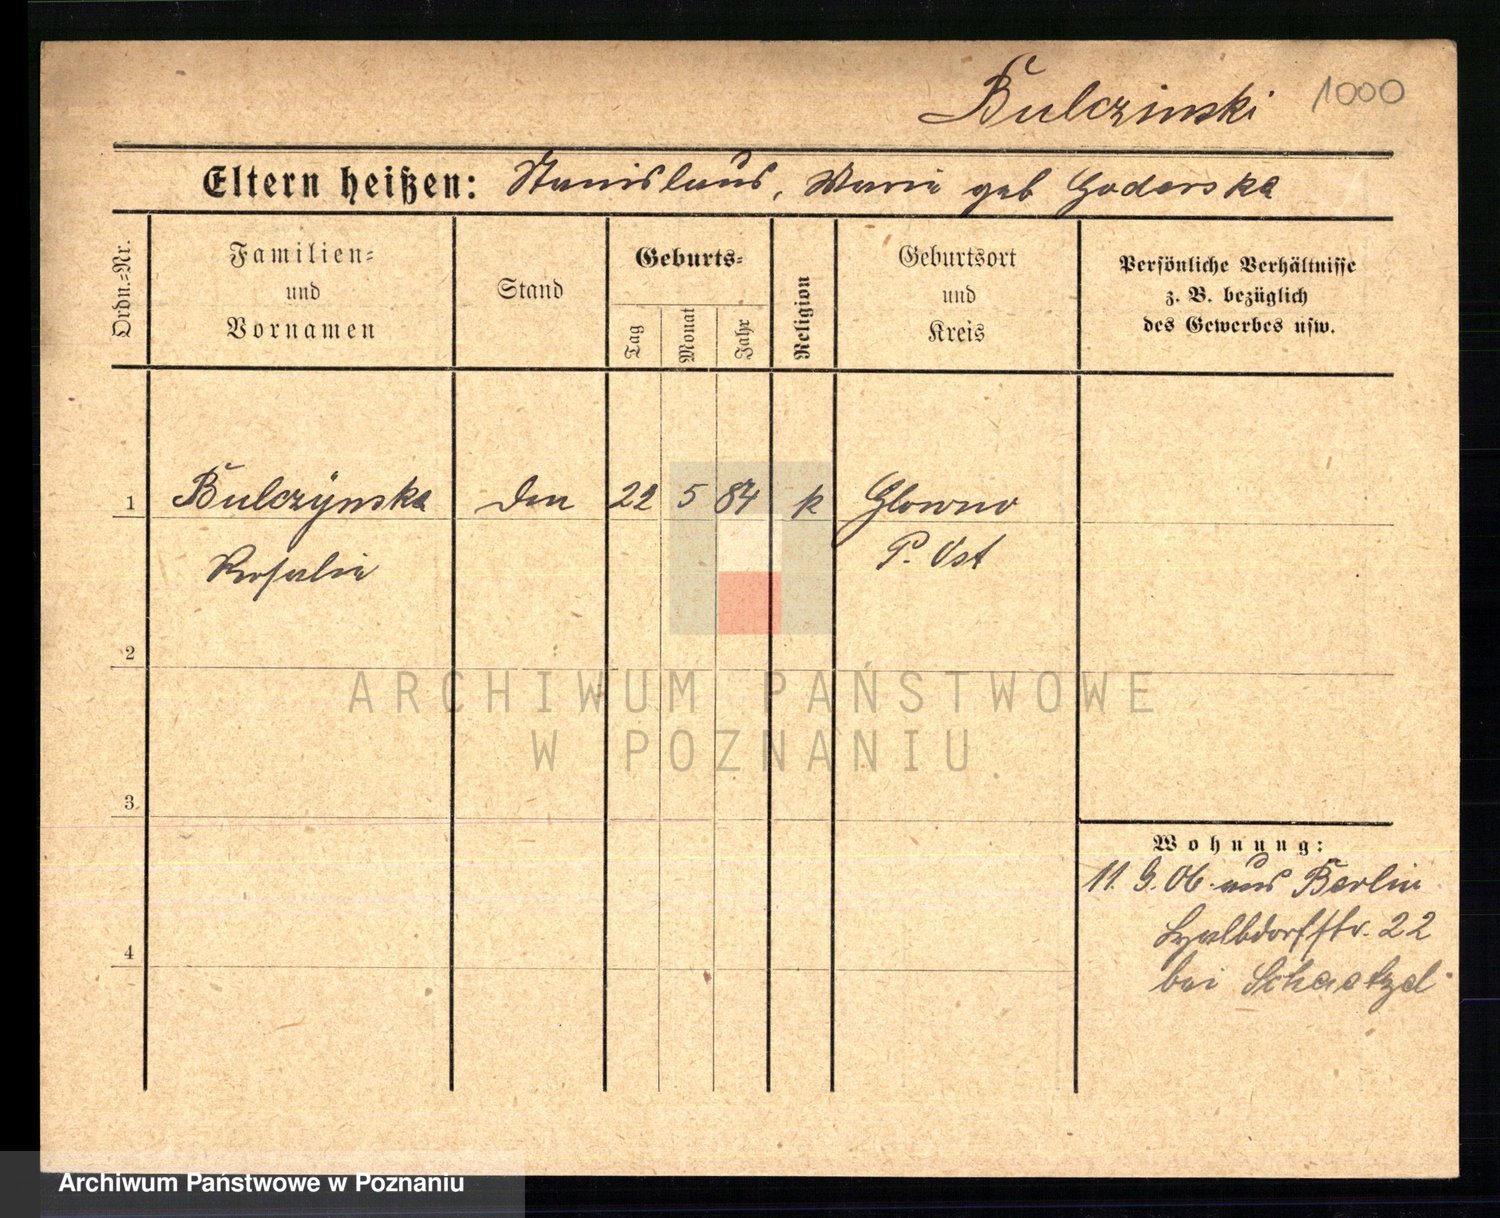 Bulczinski 1000
Eltern heißen: Stanislaus, Marie geb Goderska
Ordn.=Nr.
Familien=
und
Vornamen
Stand
Geburts=
Tag
Monat
Jahr
Religion
Geburtsort
und
Kreis
Persönliche Verhältnisse
z. B. bezüglich
des Gewerbes usw.
1 Bulczÿnska 22 5 84 k Glowno
Rosalie P. Ost
2
ARCHIWUM PAŃSTWOWE
W POZNANIU
3
Wohnung:
11. 9. 06. aus Berlin
22
4
bei Schaetzel
Archiwum Państwowe w Poznaniu